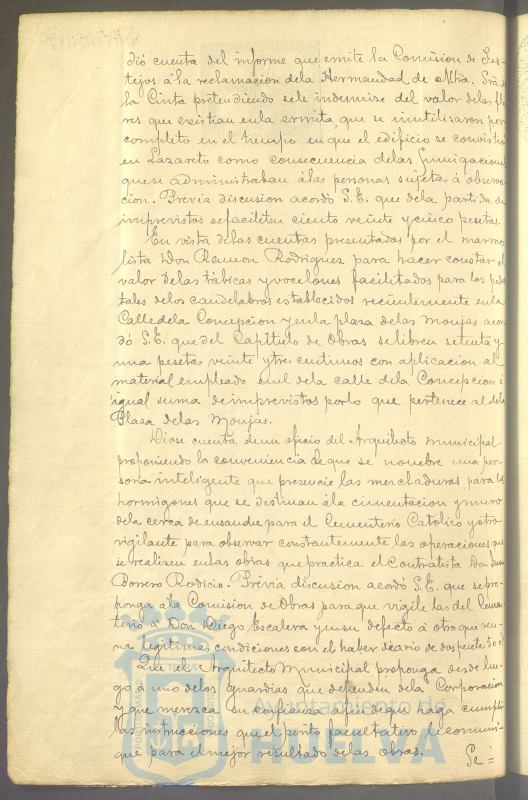 dió cuenta del informe que emite la Comision de Fes-
tejos á la reclamacion dela Hermandad de Ntra. Sra. de
la Cinta pretendiendo sele indemnise del valor delas flo
res que existian en la ermita, que se inutilizaron por
completo en el tiempo en que el edificio se convirtió
en Lazareto como consecuencia delas fumigaciones
que se administraban á las personas sujetas á observa
cion. Prévia discusion acordó S.E. que dela partida de
imprevistos se faciliten ciento veinte y cinco pesetas.
En vista delas cuentas presentadas por el marmo
lista Don Ramon Rodriguez para hacer constar el
valor delas tábicas y vocelones facilitados para los pedes
tales delos candelabros establecidos recientemente en la
Calle dela Concepcion y en la plaza delas Monjas acor
dó S.E. que del Capítulo de Obras se libren setenta y
una pesetas veinte y tres centimos con aplicacion al
material empleado en el dela calle dela Concepcion é
igual suma de imprevistos por lo que pertenece al dela
Plaza delas Monjas.
Diose cuenta de un oficio del Arquitecto municipal
proponiendo la conveniencia de que se nombre una per-
sona inteligente que presencie las mezcladuras para los
hormigones que se destinan á la cimentacion y muro
dela cerca de ensanche para el Cementerio Católico y otro
vigilante para observar constantemente las operaciones que
se realizen en las obras que practica el Contratista Don
Borrero Rodicio. Prévia discusion acordó S.E. que se pro-
ponga á la Comision de Obras para que vigile las del Cemen-
terio á Don Diego Escalera y en su defecto á otro que reu-
na legitimas condiciones con el haber diario de dos pesetas 50 cs
Que el Arquitecto Municipal proponga desde lue-
go á uno delos guardias que dependen dela Corporacion
y que merezca su confianza á fin de que haga cumplir
las instrucciones que el perito facultativo le comuni-
que para el mejor resultado de las obras.
Se =
Ayuntamiento de
HUELVA